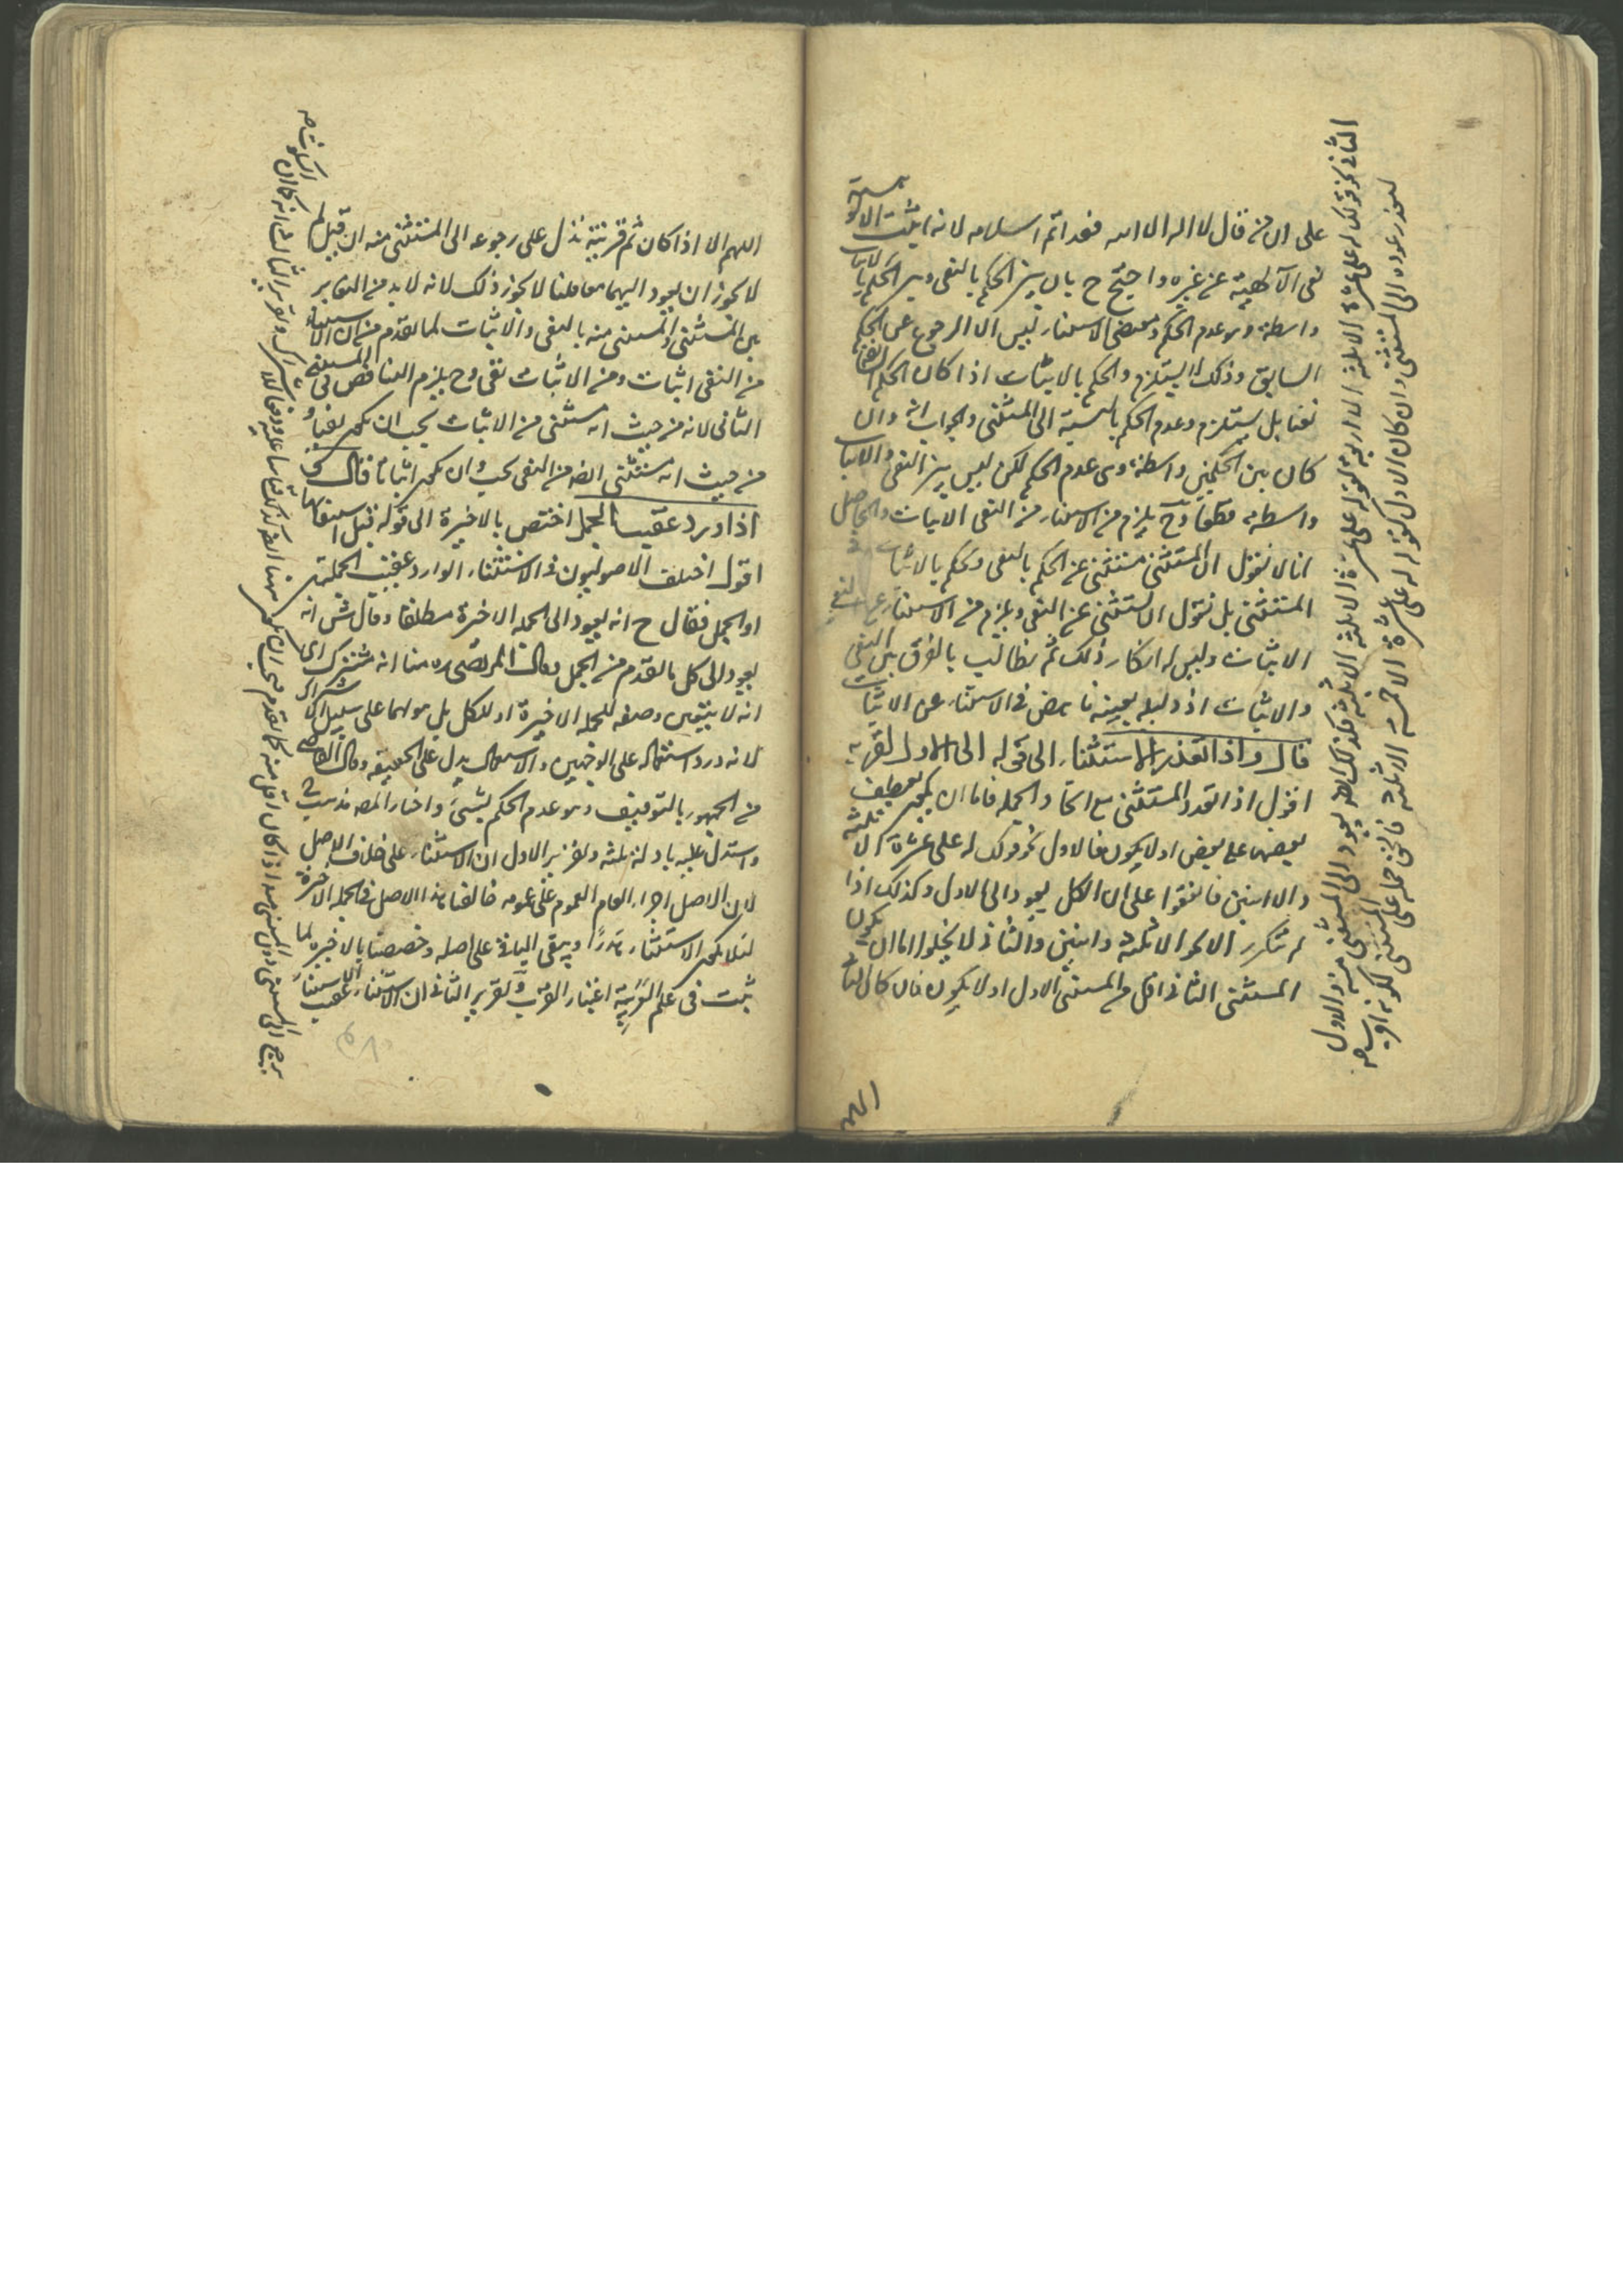 على ان من قال لا اله الا الله فقد اتم اسلامه لانه اثبت الالوهية
نفى الآلهية عن غيره واحتج ح بان بين الحكم بالنفى وبين الحكم بالاثبات
واسطة وهو عدم الحكم ومقتضى الاستثناء ليس الا الرجوع عن الحكم
السابق وذلك لا يستلزم الحكم بالاثبات اذا كان الحكم السابق
نفيا بل يستلزم عدم الحكم بالنسبة الى المستثنى والجواب انه وان
كان بين الحكمين واسطة وهى عدم الحكم لكن ليس بين النفى والاثبات
واسطة قطعا وح يلزم من الاستثناء من النفى الاثبات والحاصل
انا لا نقول ان المستثنى مستثنى عن الحكم بالنفى وحكم بالاثبات فى
المستثنى بل نقول ان المستثنى عن النفى ويلزم من الاستثناء عن النفى
الاثبات وليس له انكار ذلك ثم نطالب بالفرق بين النفى
والاثبات اذ دليله بعينه ناهض فى الاستثناء عن الاثبات
قال واذا تعدد الاستثناء الى قوله الى الاول لقربه
اقول اذا تعدد المستثنى مع اتحاد الجملة فاما ان يكون بعطف
بعضها على بعض اولا يكون فالاول نحو قولك له على عشرة الا ثلثة
والا اثنين فاتفقوا على ان الكل يعود الى الاول وكذلك اذا
لم تتكرر الا نحو الا ثلثة واثنين والثانى لا يخلوا اما ان يكون
المستثنى الثانى اقل من المستثنى الاول او لا يكون فان كان الثا
الثانى نحو قولك له على عشرة الا ثلثة الا اربعة
لتعذر عوده الى المستثنى وان كان الاول كقوله له على عشرة الا خمسة الا ثلثة فالحق حمله على المستثنى لكونه اقرب صح
اللهم
اللهم الا اذا كان ثم قرينة تدل على رجوعه الى المستثنى منه ان قيل لم
لا يجوز ان يعود اليهما معا قلنا لا يجوز ذلك لانه لا بد من التغاير
بين المستثنى والمستثنى منه بالنفى والاثبات لما تقدم من ان الاستثناء
من النفى اثبات ومن الاثبات نفى وح يلزم التناقض فى المستثنى
الثانى لانه من حيث انه مستثنى من الاثبات يجب ان يكون نفيا و
من حيث انه مستثنى ايضا من النفى يجب ان يكون اثباتا قال
اذا ورد عقيب الجمل اختص بالاخيرة الى قوله قبل استيفائها
اقول اختلف الاصوليون فى الاستثناء الوارد عقيب الجملتين
او الجمل فقال ح انه يعود الى الجملة الاخيرة مطلقا وقال ش انه
يعود الى كل ما تقدم من الجمل وقال المرتضى ره منا انه مشترك اى
انه لا يتعين وصفه للجملة الاخيرة او للكل بل هو لهما على سبيل الاشتراك
لانه ورد استعماله على الوجهين والاستعمال يدل على الحقيقة وقال القاضى
من الجمهور بالتوقيف وهو عدم الحكم بشىء واختار المصـ مذهب ح
واستدل عليه بادلة ثلثة وتقرير الاول ان الاستثناء على خلاف الاصل
لان الاصل اجراء العام العموم على عمومه خالفنا هذا الاصل فى الجملة الاخيرة
لئلا يكون الاستثناء هدرا ويبقى الباقى على اصله وخصصنا بالاخيرة لما
ثبت فى علم العربية اعتبار القرب وتقرير الثانى ان الاستثناء عقيب الاستثناء
يرجع الى المستثنى دون المستثنى منه اذا كان اقل منه كما تقدم